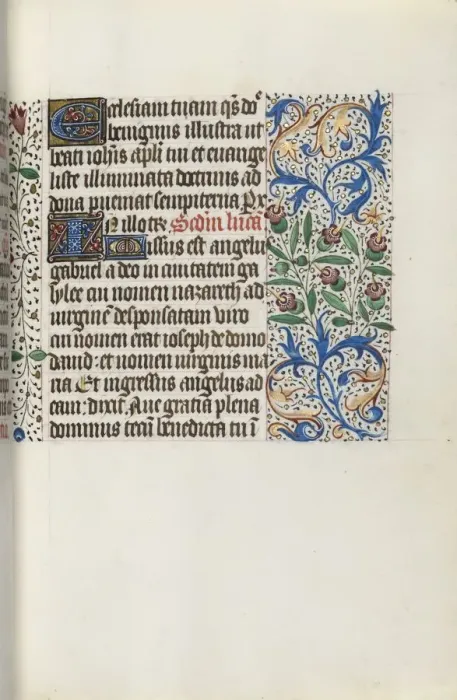 Ecclesiam tuam q̄s dn̄e
benignus illustra ut
beati ioh̄is apl̄i tui et euange
liste illuminata doctrinis ad
dona pueniat sempiterna P x
In illo tr̄e Scdm lucā
Missus est angelus
gabriel a deo in ciuitatem ga
lylee cui nomen nazareth ad
uirginē desponsatam uiro
cui nomen erat ioseph de domo
dauid et nomen uirginis ma
ria Et ingressus angelus ad
eam dixit Aue gratia plena
dominus tecū benedicta tu ī